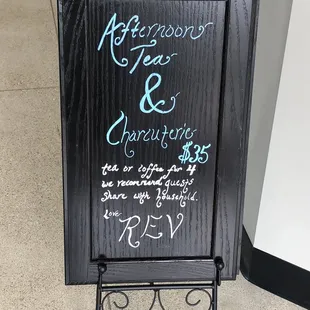 Afternoon
Tea
&
Charcuterie
$35
tea or coffee for 4
we recommend guests
share with household.
Love
REV